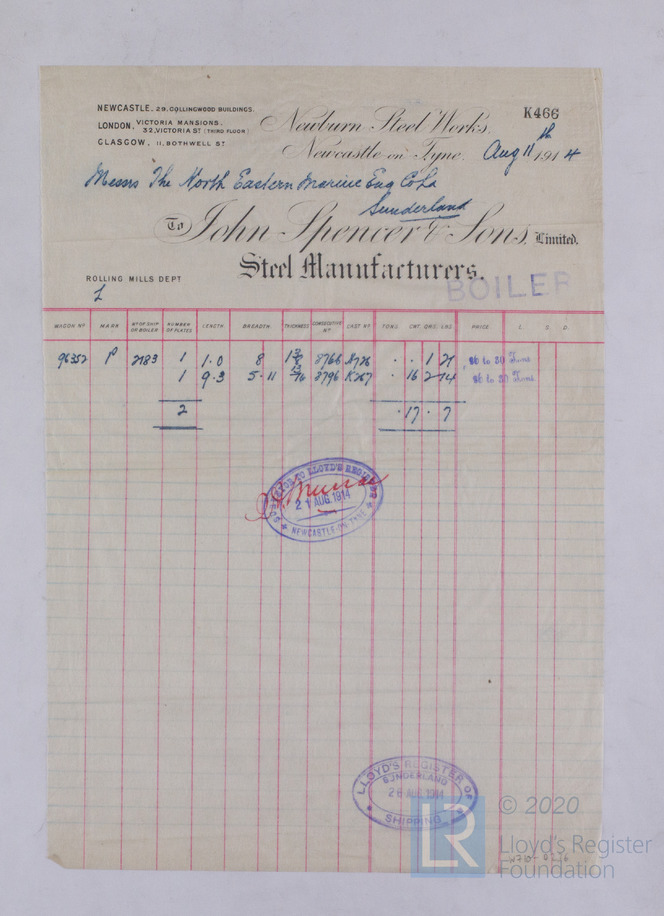 K466
NEWCASTLE. 29, COLLINGWOOD BUILDINGS.
LONDON. VICTORIA MANSIONS.
32, VICTORIA ST (THIRD FLOOR)
GLASGOW, 11, BOTHWELL ST
Newburn Steel Works,
Newcastle on Tyne. Aug 11th 1914
Messrs The North Eastern Marine Eng Co Ld
Sunderland
To John Spencer & Sons, Limited.
Steel Manufacturers.
ROLLING MILLS DEPT
BOILER
WAGON No MARK No OF SHIP OR BOILER NUMBER OF PLATES LENGTH BREADTH THICKNESS CONSECUTIVE No CAST No TONS. CWT. QRS. LBS PRICE L. S. D.
96352 P 2183 1 1.0 8 8766 . . 1 21 26 to 30 Tons
1 9.3 5.11 8796 K267 . 16 2 14 26 to 30 Tons
2 . 17 . 7
SURVEYOR TO LLOYD'S REGISTER
21 AUG. 1914
NEWCASTLE-ON-TYNE
LLOYD'S REGISTER OF
SUNDERLAND
26 AUG. 1914
SHIPPING
LR
© 2020
Lloyd's Register
Foundation